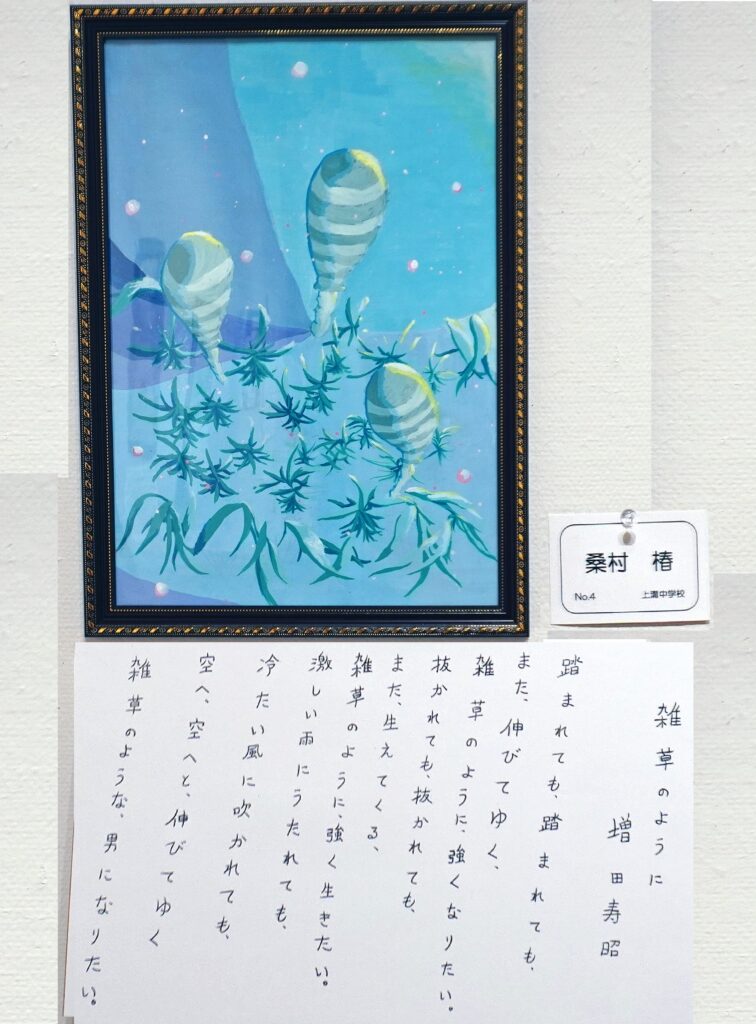 桑村 椿
No.4 上溝中学校
雑草のように
増田寿昭
踏まれても、踏まれても、
また、伸びてゆく、
雑草のように、強くなりたい。
抜かれても、抜かれても、
また、生えてくる、
雑草のように、強く生きたい。
激しい雨にうたれても、
冷たい風に吹かれても、
空へ、空へと、伸びてゆく
雑草のような、男になりたい。